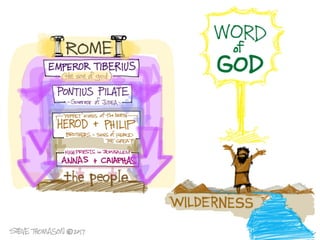 ROME
EMPEROR TIBERIUS
the son of god
PONTIUS PILATE
- Governor of JUDEA
PUPPET KINGS of the North
HEROD + PHILIP
BROTHERS - SONS of HEROD
THE GREAT
HIGH PRIESTS in JERUSALEM
ANNAS + CAIAPHAS
the people
WORD
of
GOD
WILDERNESS
STEVE THOMASON © 2017